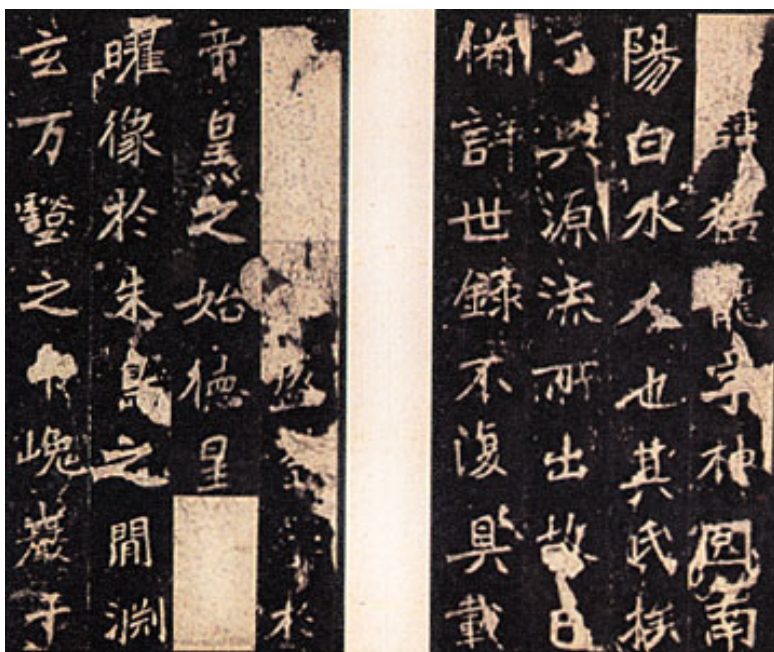 諱猛龍字神囧南
陽白水人也其氏族
分興源流所出故已
俻詳世録不復具載
盛於
帝皇之始德星
曜像於朱鳥之間淵
玄万壑之中嵬巖千